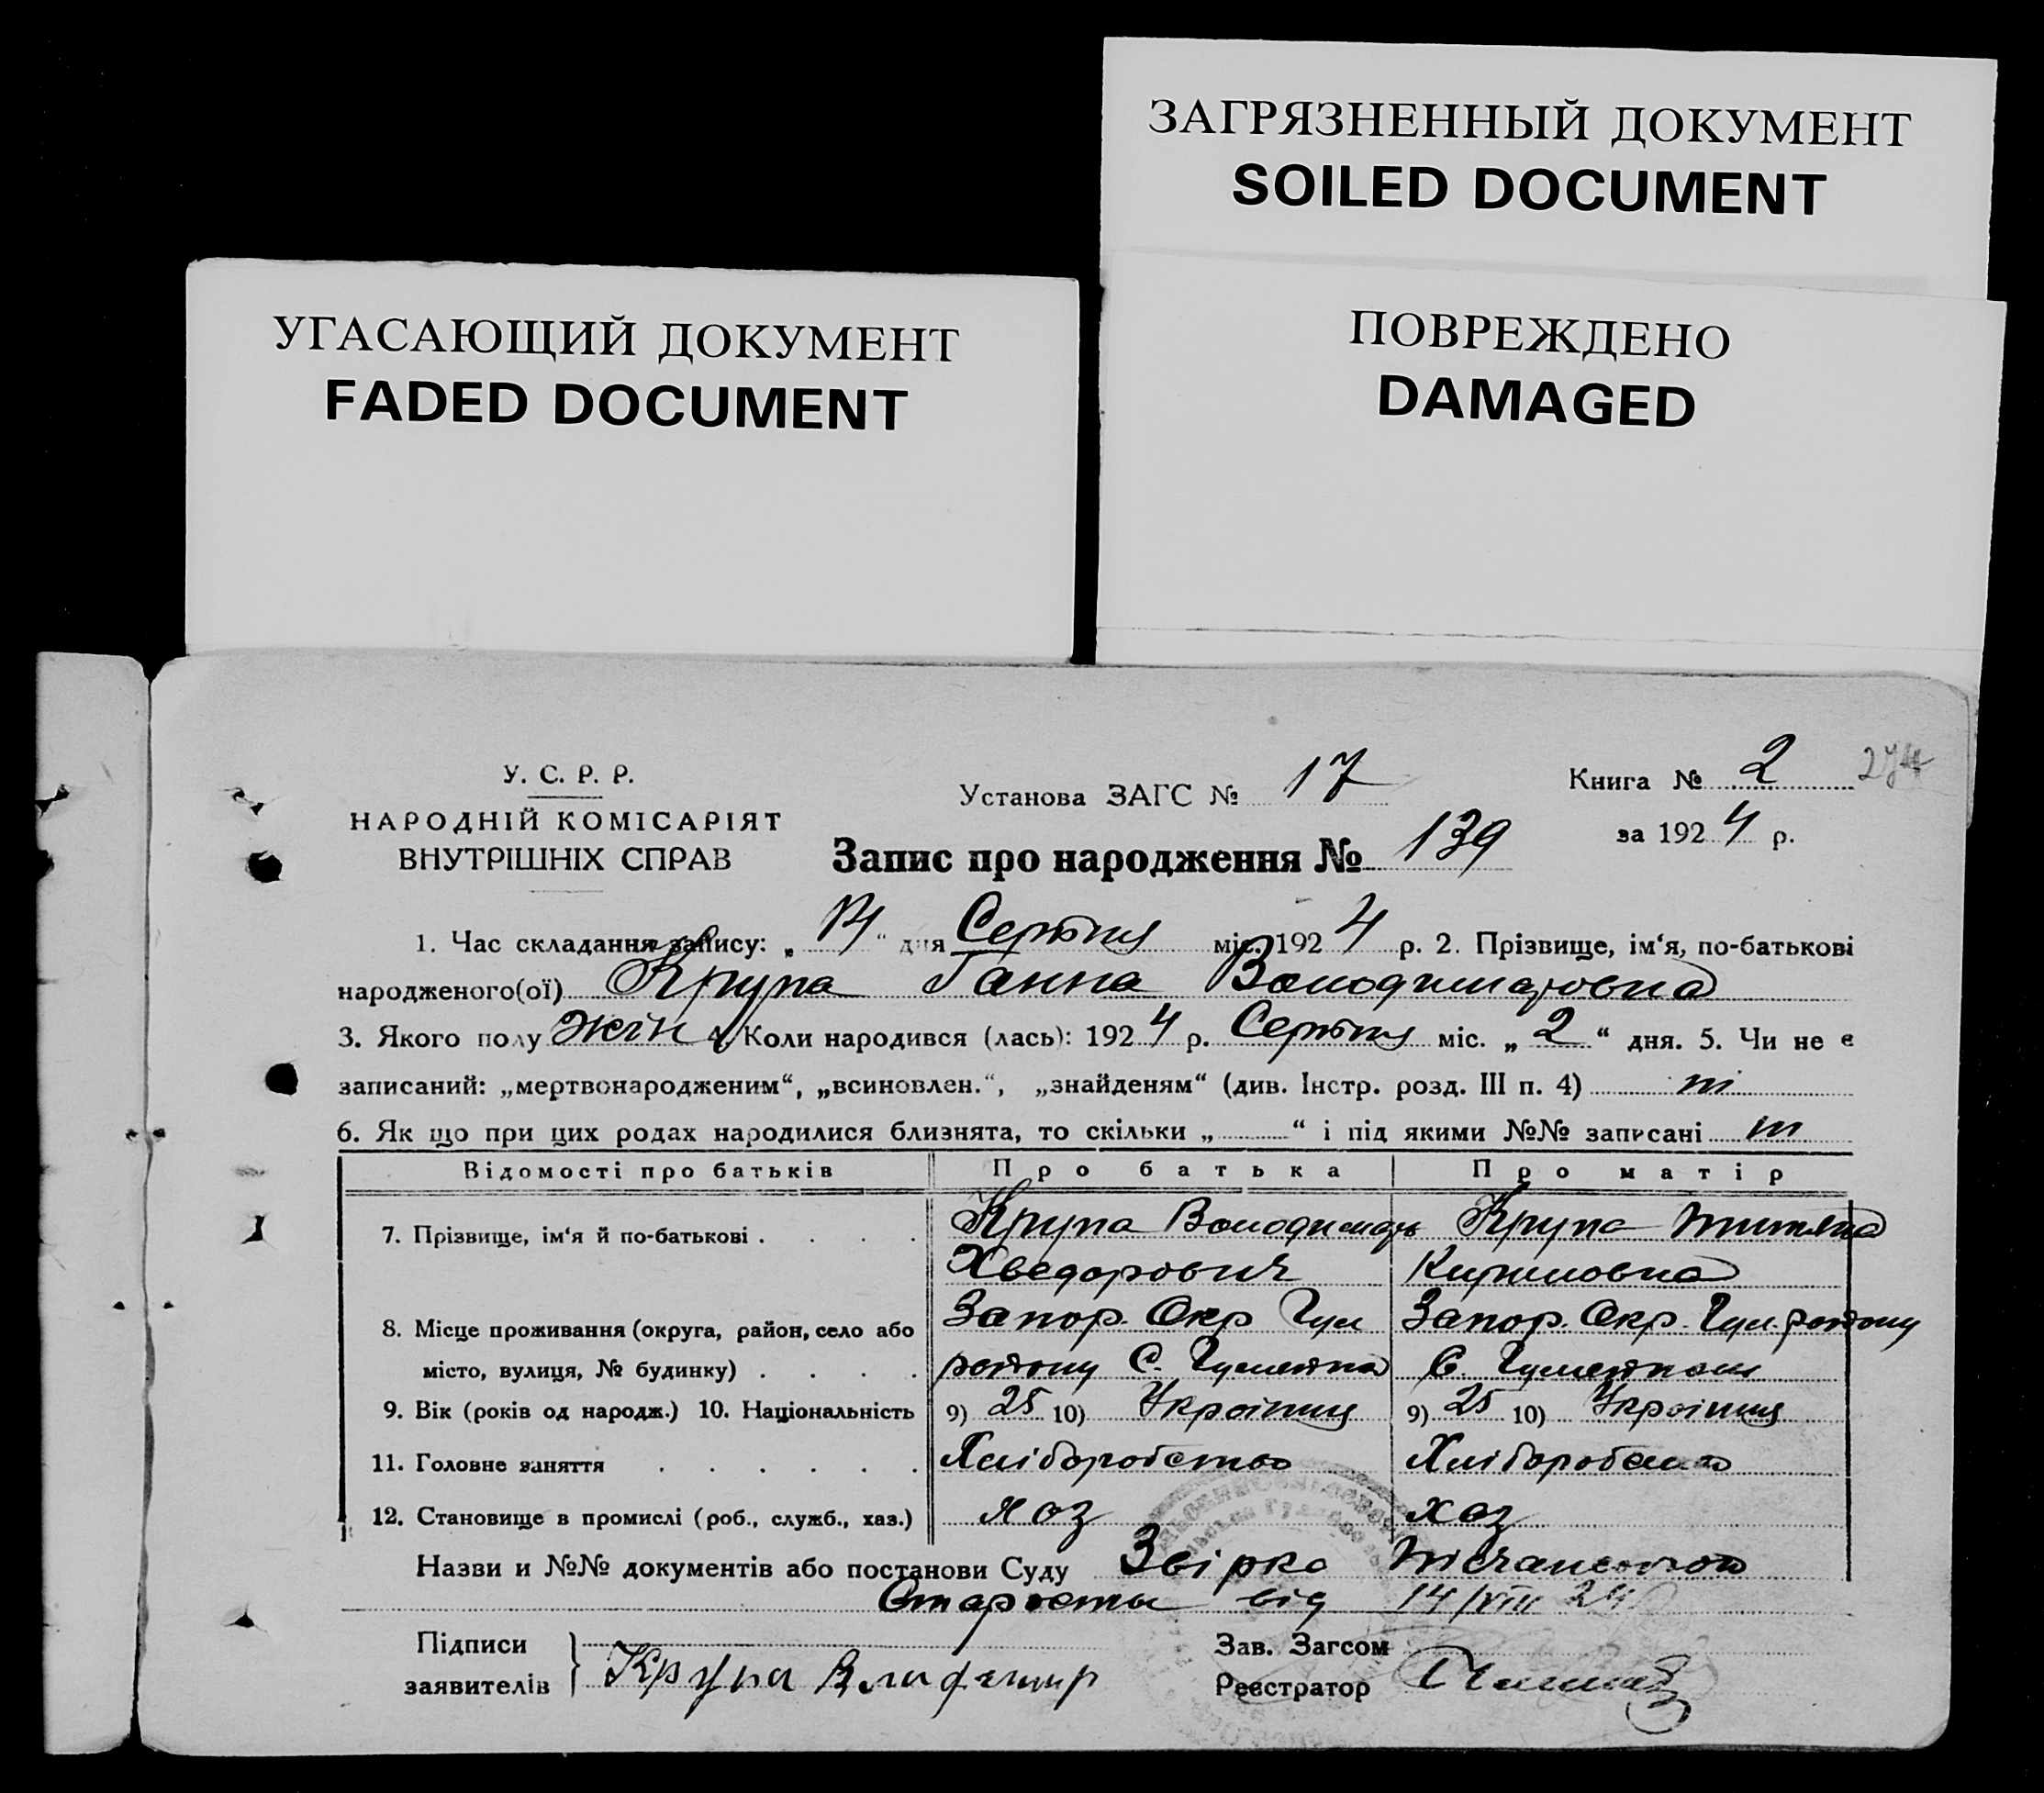 ЗАГРЯЗНЕННЫЙ ДОКУМЕНТ
SOILED DOCUMENT
УГАСАЮЩИЙ ДОКУМЕНТ
FADED DOCUMENT
ПОВРЕЖДЕНО
DAMAGED
У. С. Р. Р.
НАРОДНІЙ КОМІСАРІЯТ
ВНУТРІШНІХ СПРАВ
Установа ЗАГС № 17
Книга № 2
274
за 1924 р.
Запис про народження № 139
1. Час складання запису: „14“ дня Серпня міс. 1924 р. 2. Прізвище, ім‘я, по-батькові
народженого(ої) Крупа Ганна Володимировна
3. Якого полу жін 4. Коли народився (лась): 1924 р. Серпня міс. „2“ дня. 5. Чи не є
записаний: „мертвонародженим“, „всиновлен.“, „знайденям“ (див. Інстр. розд. III п. 4) ні
6. Як що при цих родах народилися близнята, то скільки „ “ і під якими №№ записані ні
Відомості про батьків Про батька Про матір
7. Прізвище, ім‘я й по-батькові . . . . Крупа Володимирь Крупа
Хведорович Кириловна
8. Місце проживання (округа, район, село або Запор. Окр Гул Запор. Окр. Гул. району
місто, вулиця, № будинку) . . . . району С.
9. Вік (років од народж.) 10. Національність 9) 25 10) Україниц 9) 25 10) Україниц
11. Головне заняття . . . . . . Хліборобство Хліборобство
12. Становище в промислі (роб., служб., хаз.) хоз хоз
Назви и №№ документів або постанови Суду Звірка
Старосты від 14/VIII 24
Підписи
заявителів } Крупа Владимир
Зав. Загсом
Реєстратор